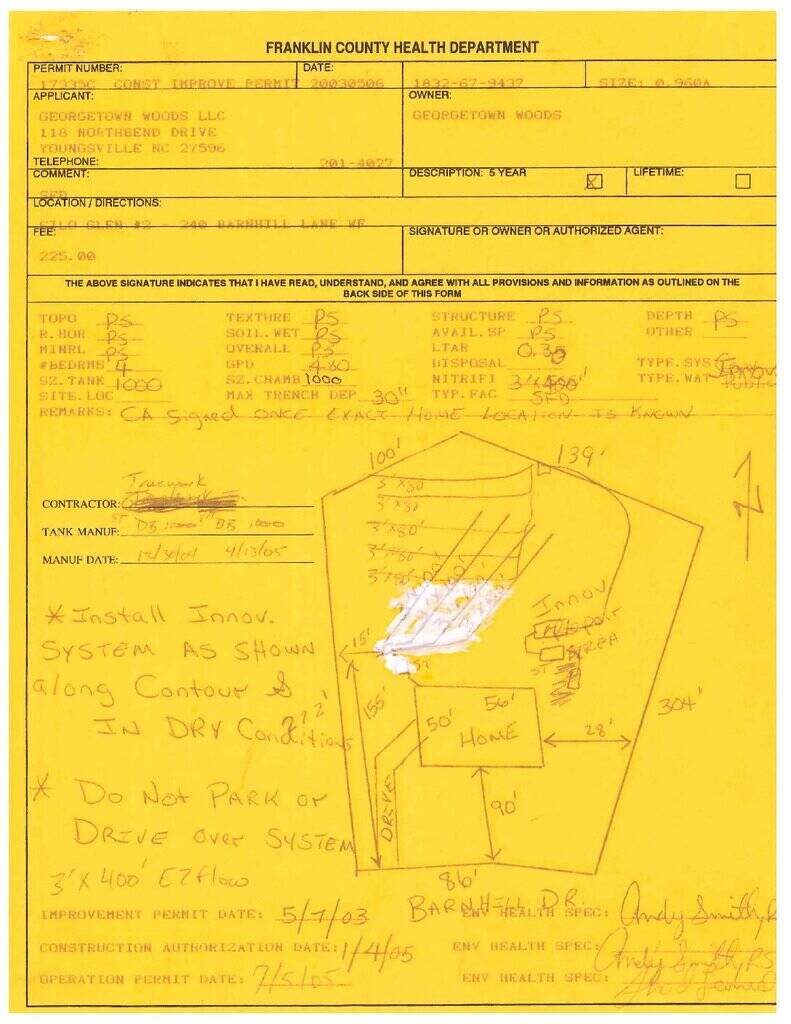 FRANKLIN COUNTY HEALTH DEPARTMENT
PERMIT NUMBER: DATE:
17335C CONST IMPROVE PERMIT 20030506 1832-67-9437 SIZE: 0.960A
APPLICANT: OWNER:
GEORGETOWN WOODS LLC GEORGETOWN WOODS
118 NORTHBEND DRIVE
YOUNGSVILLE NC 27596
TELEPHONE: 201-4027
COMMENT: DESCRIPTION: 5 YEAR X LIFETIME:
SFD
LOCATION / DIRECTIONS:
GLEN #2 - 240 BARNHILL LANE WF
FEE: SIGNATURE OR OWNER OR AUTHORIZED AGENT:
225.00
THE ABOVE SIGNATURE INDICATES THAT I HAVE READ, UNDERSTAND, AND AGREE WITH ALL PROVISIONS AND INFORMATION AS OUTLINED ON THE
BACK SIDE OF THIS FORM
TOPO PS TEXTURE PS STRUCTURE PS DEPTH PS
R.HOR PS SOIL.WET PS AVAIL.SP PS OTHER
MINRL PS OVERALL PS LTAR 0.35
#BEDRMS 4 GPD 480 DISPOSAL TYPE.SYS Innov
SZ.TANK 1000 SZ.CHAMB 1000 NITRIFI 3'X400' TYPE.WAT PUBLIC
SITE.LOC MAX TRENCH DEP 30" TYP.FAC SFD
REMARKS: CA Signed ONCE EXACT HOME LOCATION IS KNOWN
100' 139'
3'X80'
3'X80'
CONTRACTOR:
3'X80'
TANK MANUF: ST DB 1000 DB 1000
3'X80'
MANUF DATE: 4/13/05
3'X80'
Innov
AREA
* Install Innov.
SYSTEM AS SHOWN
along Contour &
IN DRY Conditions
15'
ST
ST
155'
272'
304'
50' 56'
HOME
28'
DRIVE
90'
* DO NOT PARK or
DRIVE over SYSTEM
3' X 400' EZflow
86'
BARNHILL DR.
IMPROVEMENT PERMIT DATE: 5/7/03 ENV HEALTH SPEC: Andy Smith, R
CONSTRUCTION AUTHORIZATION DATE: 1/4/05 ENV HEALTH SPEC: Andy Smith, RS
OPERATION PERMIT DATE: 7/5/05 ENV HEALTH SPEC: